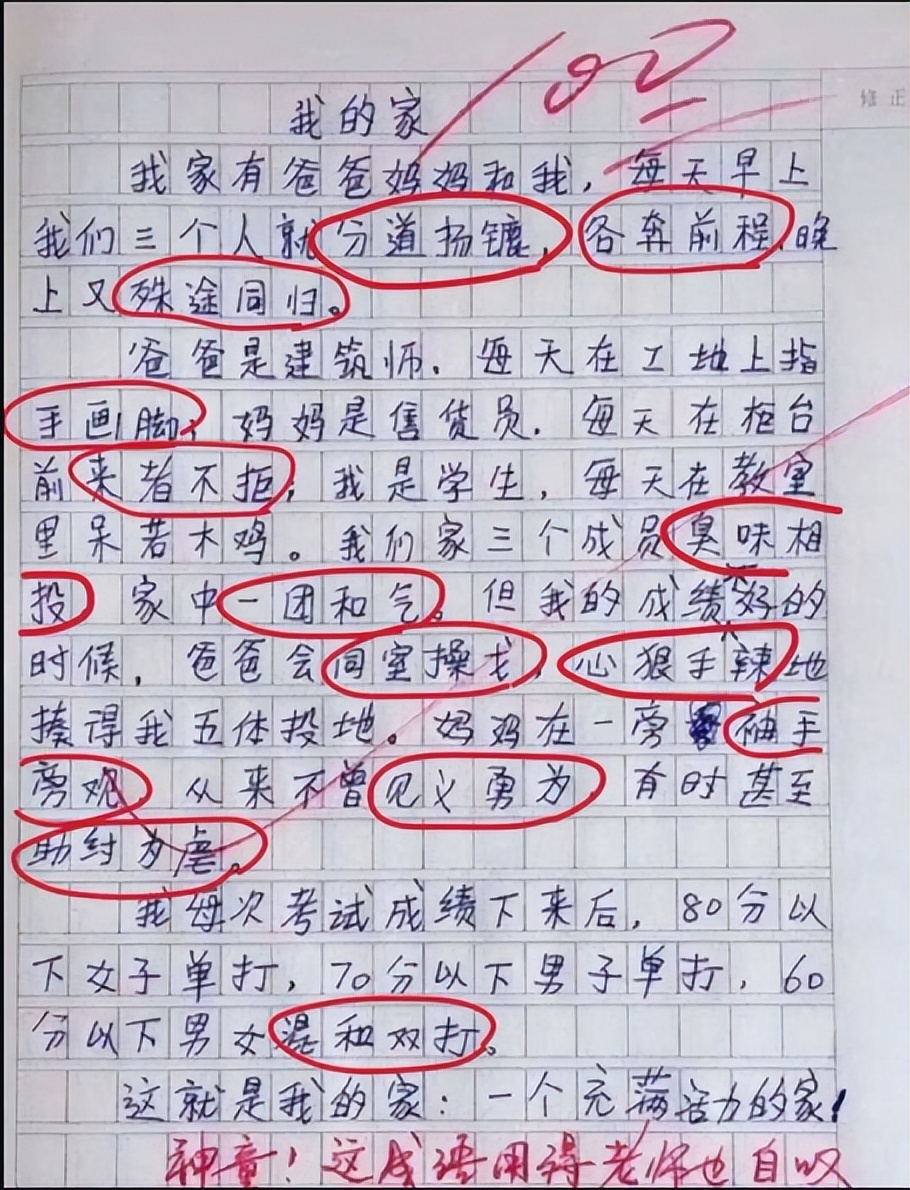 100
修正
我的家
我家有爸爸妈妈和我，每天早上
我们三个人就分道扬镳，各奔前程，晚
上又殊途同归。
爸爸是建筑师．每天在工地上指
手画脚；妈妈是售货员．每天在柜台
前来者不拒；我是学生，每天在教室
里呆若木鸡。我们家三个成员臭味相
投 家中一团和气。但我的成绩不好的
时候，爸爸会同室操戈，心狠手辣地
揍得我五体投地。妈妈在一旁袖手
旁观 从来不曾见义勇为，有时甚至
助纣为虐。
我每次考试成绩下来后，80分以
下女子单打，70分以下男子单打，60
分以下男女混和双打。
这就是我的家：一个充满活力的家！
神童！这成语用得老师也自叹